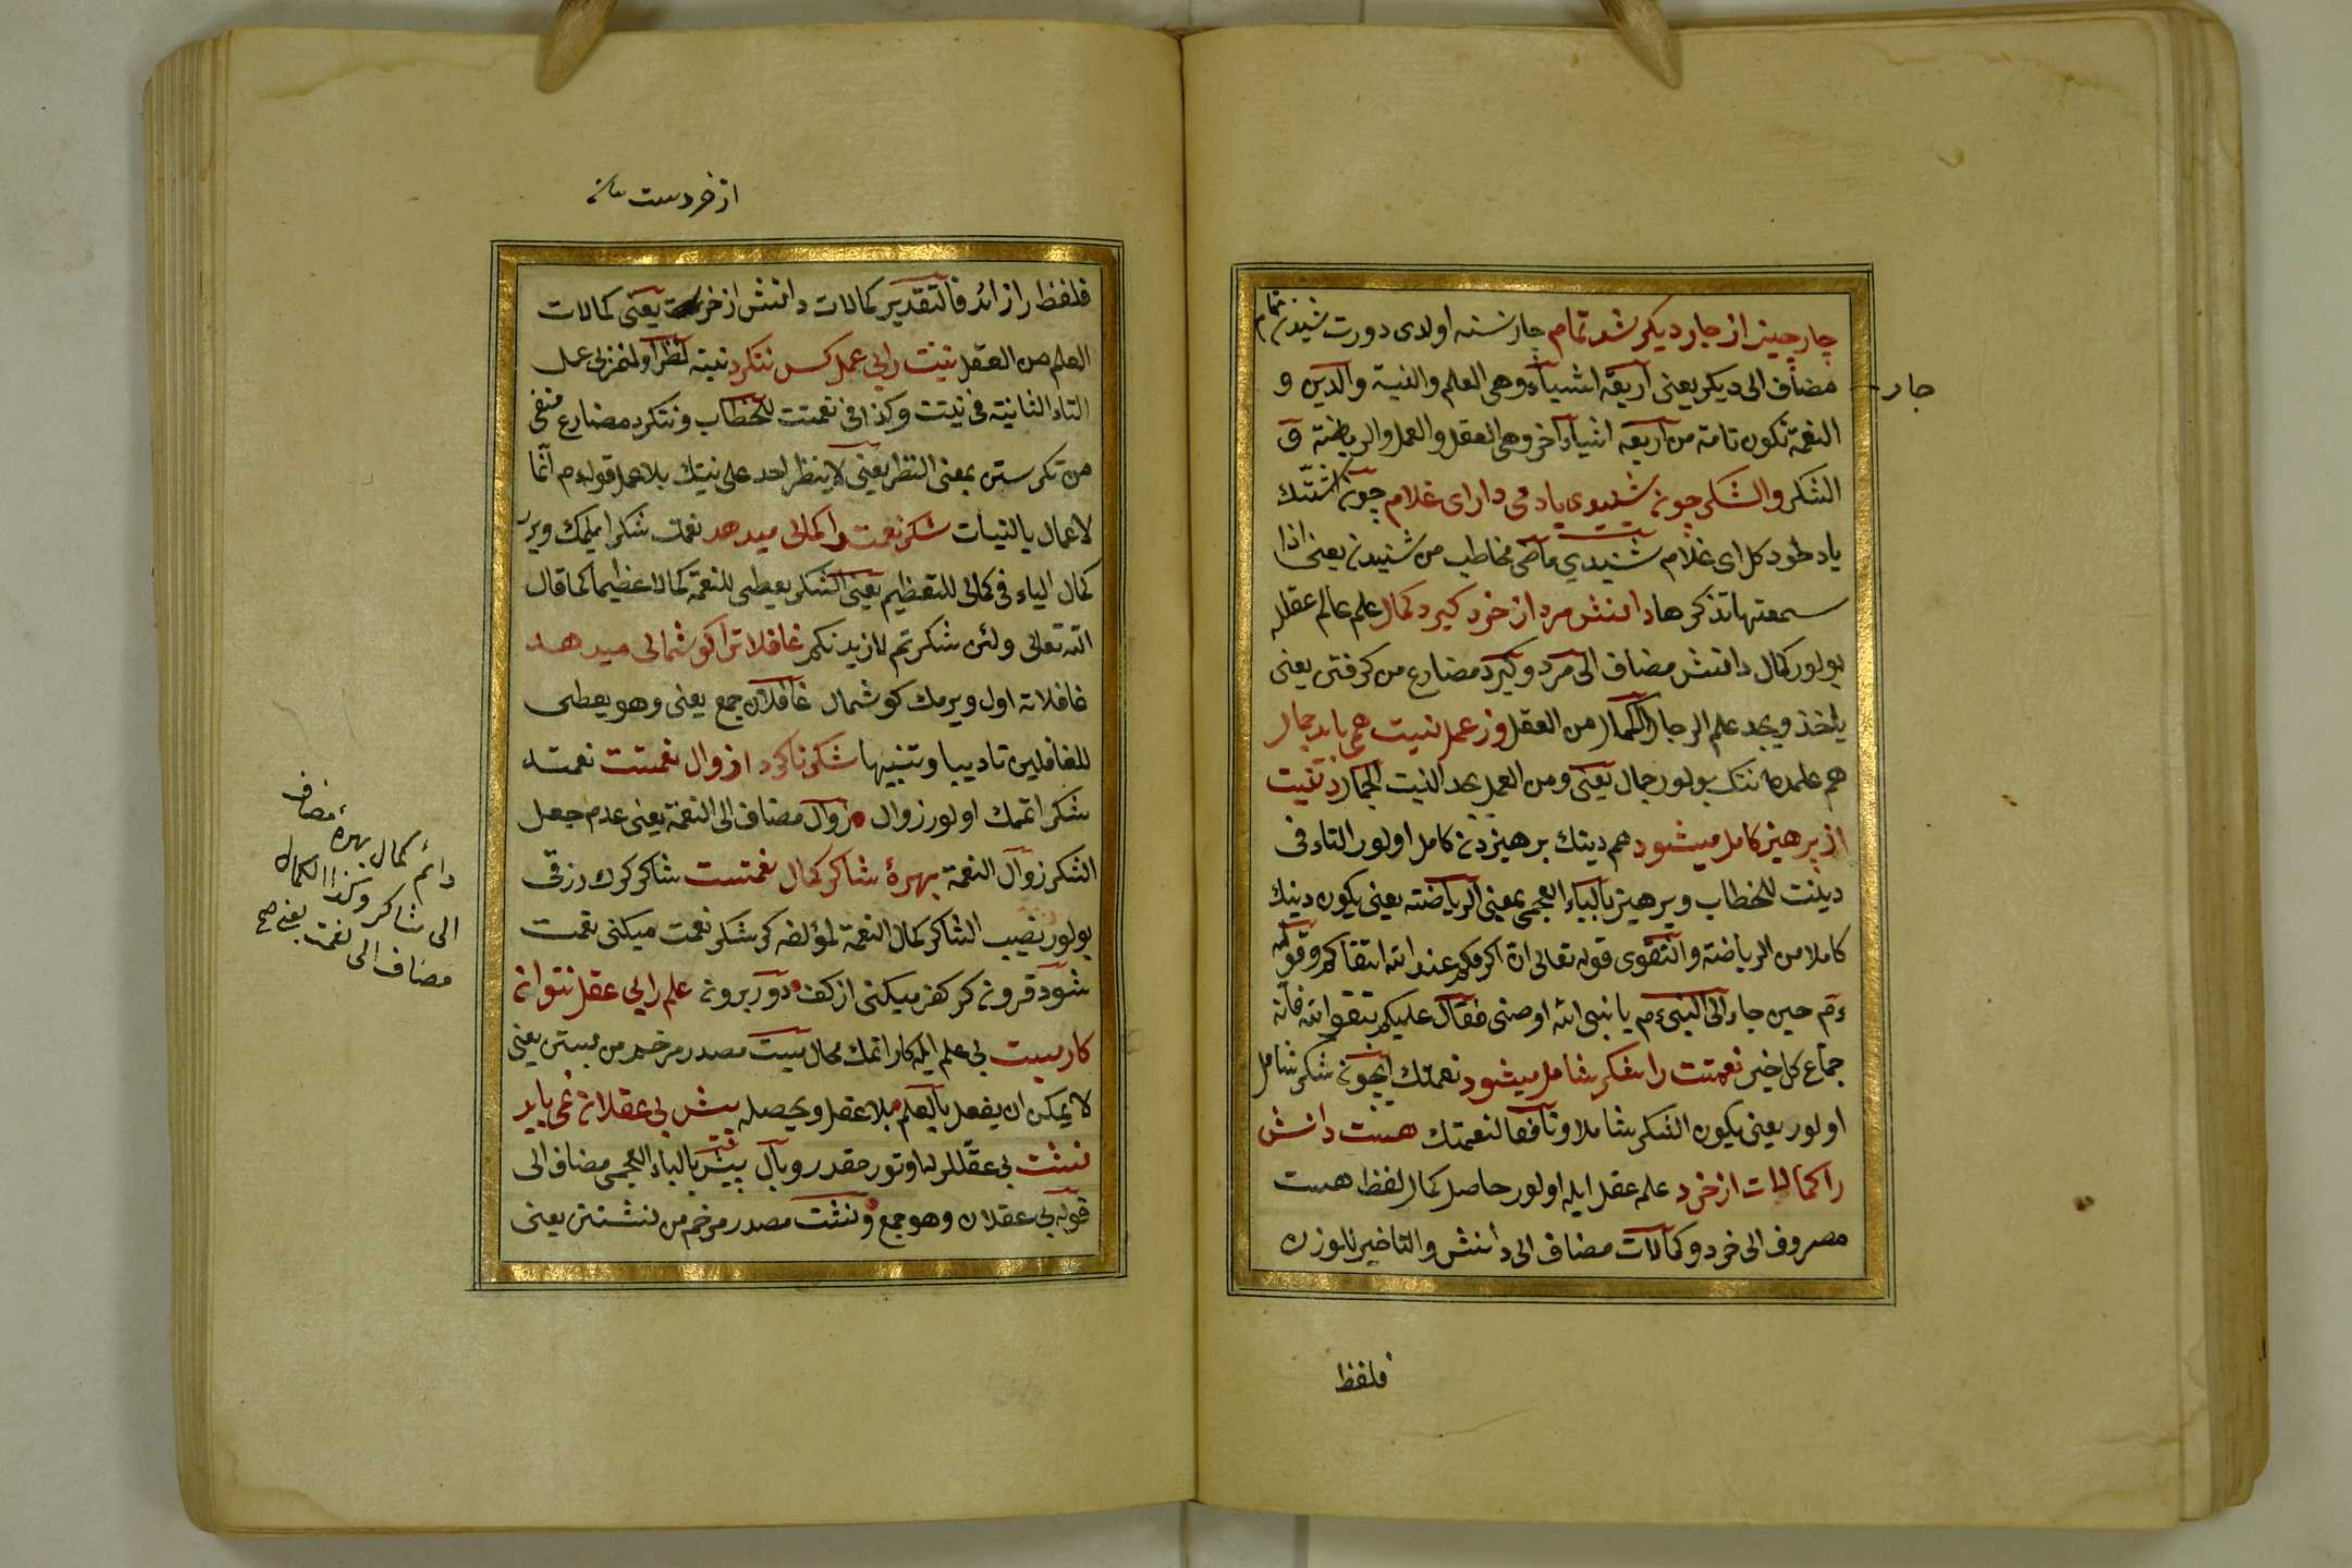 چار چیز از چار دیکر شد تمام چار نسنه اولدی دورت شیدن تمام
چار
مضاف الی دیکر یعنی اربعة اشیاء وهی العلم والنیة والدین و
النعمة تکون تامة من اربعة اشیاء آخر وهی العقل والعمل والریاضة و
الشکر والشکر چون شنیدی یاد می دارای غلام چون اشتدک
یاد طود کل ای غلام شنیدی ماضی مخاطب من شنیدن یعنی اذا
سمعتها تذکرها دانش مرد از خرد کیرد کمال علم عالم عقله
بولور کمال دانش مضاف الی مرد وکیرد مضارع من کرفتن یعنی
یاخذ ویجد علم الرجال الکمال من العقل وز عمل نیت همی یابد جمال
هم علمده نیتک بولور جمال یعنی ومن العمل یجد النیت الجمال دینت
از پرهیز کامل میشود هم دینک پرهیزدن کامل اولور التاء فی
دینت للخطاب وپرهیز بالباء العجمی بمعنی الریاضة یعنی یکون دینک
کاملا من الریاضة والتقوی قوله تعالی ان اکرمکم عند الله اتقاکم وقوله
ءم حین جاء الی النبی ءم یا نبی الله اوصنی فقال علیکم بتقوی الله فانه
جماع کل خیر نعمتت را شکر شامل میشود نعمتک ایچون شکر شامل
اولور یعنی یکون الشکر شاملا ونافعا لنعمتک هست دانش
را کمالات از خرد علم عقل ایله اولور حاصل کمال لفظ هست
مصروف الی خرد وکمالات مضاف الی دانش والتاخیر للوزن
فلفظ
از خردست
فلفظ را زائد فالتقدیر کمالات دانش از خرد یعنی کمالات
العلم من العقل نیتت را بی عمل کس ننکرد نیته نظر اولنمز بی عمل
التاء الثانیة فی نیتت وکذا فی نعمتت للخطاب وننکرد مضارع منفی
من نکرستن بمعنی النظر یعنی لا ینظر احد علی نیتک بلا عمل قوله ءم انما
لاعمال بالنیات شکر نعمت را کمالی میدهد نعمت شکر ایلمک ویرر
کمال الیاء فی کمالی للتعظیم یعنی الشکر یعطی للنعمة کمالا عظیما کما قال
الله تعالی ولئن شکرتم لازیدنکم غافلانرا کوشمالی میدهد
غافلانه اول ویرمک کوشمال غافلان جمع یعنی وهو یعطی
للغافلین تادیبا وتنبیها شکر ناکرد از وال نعمتت نعمته
شکر اتمک اولور زوال زوال مضاف الی النعمة یعنی عدم جعل
الشکر زوال النعمة بهرهٔ شاکر کمال نعمتست شاکر کرک رزقی
بولور نصیب الشاکر کمال النعمة لمؤلفه کر شکر نعمت میکنی نعمت
شود قرون کر کفر میکنی از کف دور برون علم را بی عقل نتوان
کار بست بی علم ایله کار اتمک محال بست مصدر مرخم من بستن یعنی
لا یمکن ان یفعل بالعلم بلا عقل ویحصله پیش بی عقلان نمی باید
نشست بی عقللرله اوتورمقدر وبال پیش بالباء العجمی مضاف الی
قوله بی عقلان وهو جمع ونشست مصدر مرخم من نشستن یعنی
دائم کمال بهرهٔ مضاف
الی شاکر وکذا الکمال
مضاف الی نعمت یعنی صح